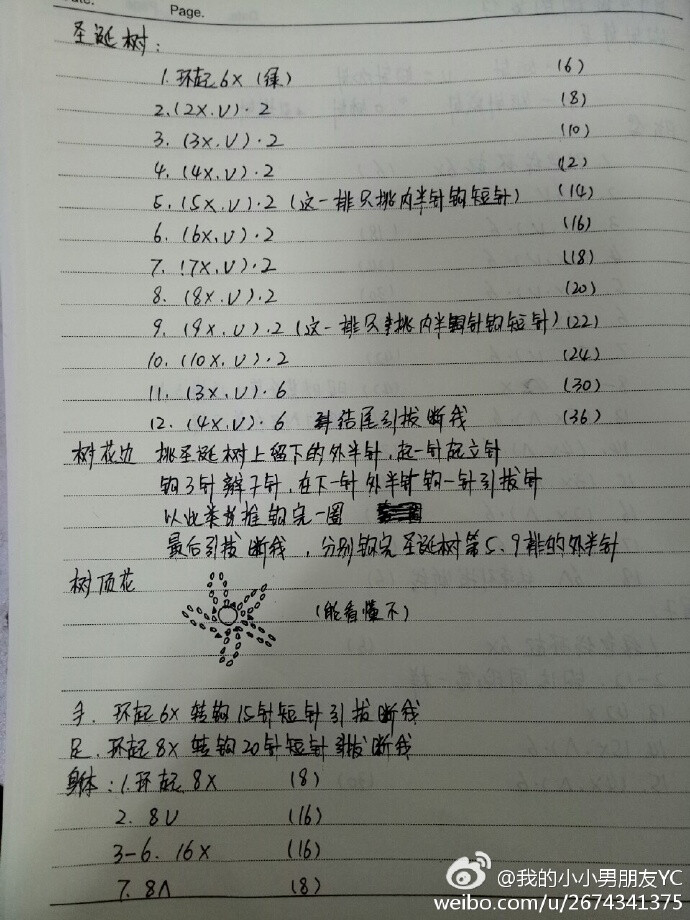 Page.
圣诞树:
1. 环起6X (绿) (6)
2. (2X.V)·2 (8)
3. (3X.V)·2 (10)
4. (4X.V)·2 (12)
5. (5X.V)·2 (这一排只挑内半针钩短针) (14)
6. (6X.V)·2 (16)
7. (7X.V)·2 (18)
8. (8X.V)·2 (20)
9. (9X.V)·2 (这一排只挑内半针钩短针) (22)
10. (10X.V)·2 (24)
11. (3X.V)·6 (30)
12. (4X.V)·6 结尾引拔断线 (36)
树花边 挑圣诞树上留下的外半针,起一针起立针
钩3针辫子针,在下一针外半针钩一针引拔针
以此类推钩完一圈
最后引拔断线,分别钩完圣诞树第5.9排的外半针
树顶花
(能看懂不)
手. 环起6X 转钩15针短针引拔断线
足. 环起8X 转钩20针短针引拔断线
身体: 1. 环起8X (8)
2. 8V (16)
3-6. 16X (16)
7. 8Λ (8)
@我的小小男朋友YC
weibo.com/u/2674341375